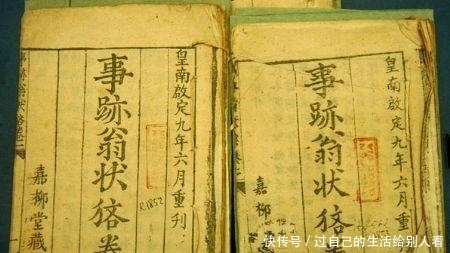 皇南啟定九年六月重
事跡翁狀
嘉柳
皇南啟定九年六月重刊
事跡翁狀 卷
R.1852
嘉柳堂藏
快传号 / 过自己的生活给别人看